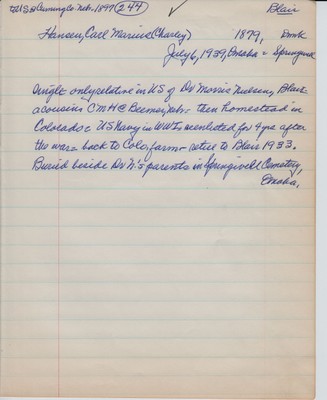 to US & Cuming Co Nebr. 1897 (244) ✓ Blair
Hansen, Carl Marius (Charley) 1879, Dmk
July 6, 1939, Omaha = Springwell
Single only relative in US of Dr Morris Nielsen, Blair
a cousin = CMH @ Beemer, Nebr = then homestead in
Colorado = US Navy in WWI = reenlisted for 4 yrs after
the war = back to Colo, farm = retire to Blair 1933.
Buried beside Dr N's parents in Springwell Cemetery,
Omaha,